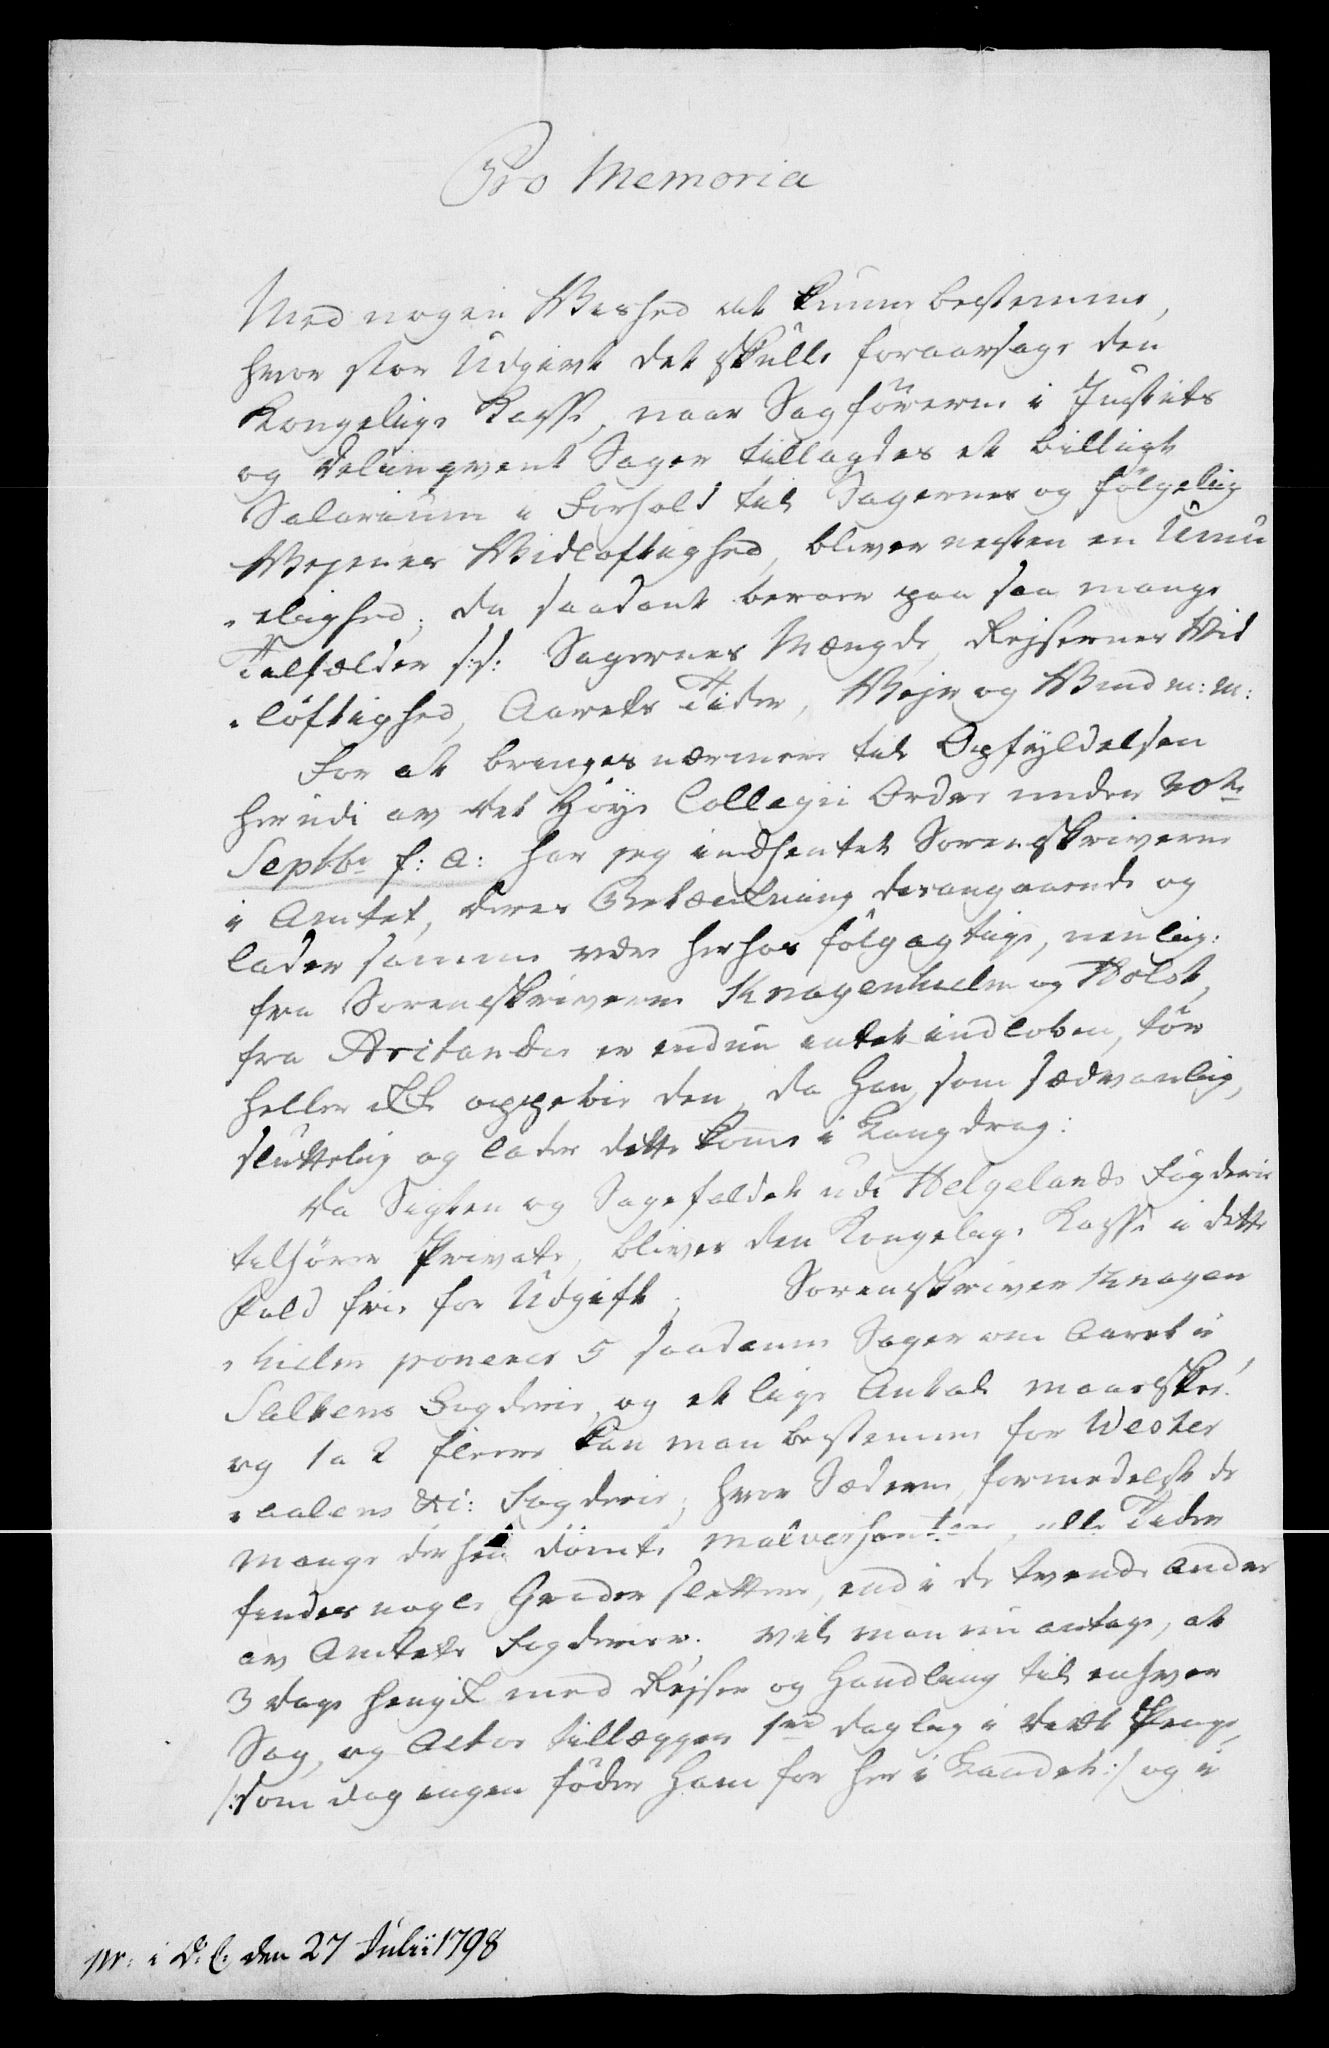 Pro Memoria
Med nogen Vished at kunne bestemme,
hvor stor Udgivt det skulle foraarsage den
Kongelige Kasse, naar Sagförerne i Justits
og Delinqvent Sager tillagdes et billigt
Salarium i Forhold til Sagernes og fölgelig
Vejenes Vidlöftighed, bliver nesten en Umu
„elighed, da saadant beroer paa saa mange
Tilfælder s: s: Sagernes Mængde, Rejsernes Vid
„löftighed, Aarets Tider, Vejr og Vind m: m:
For at bringes nærmere til Opfyldelsen
herudi av det Höye Collegii Ordre under 20de
Septbr f: a: har jeg indhentet Sorenskriverne
i Amtet, deres Betænkning desangaaende og
lader samme være herhos fölgagtige, nemlig:
fra Sorenskriverne Knagenhielm og Holst,
fra Aritander er endnu intet indloben, tör
heller ikke oppebie den, da han, som sædvanlig,
sluttelig og lader dette komme i Langdrag:
Da Sigten og Sagefaldet udi Helgelands Fogderie
tilhörer Private, bliver den Kongelige Kasse i dette
Fald frie for Udgift. Sorenskriver Knagen
„hielm ponerer 5 saadanne Sager om Aaret i
Saltens Fogderie, og et lige Antal maaeskee
og 1 a 2 fleere kan man bestemme for Wester
„aalens &c: Fogderie, hvor Sæderne formedelst de
mange derhen dömte malversanter, alle Tider
findes nogle Grader slettere, end i de tvende andre
av Amtets Fogderier. Vil man nu antage, at
3 Dage hengik med Rejser og Handling til enhver
Sag, og Actor tillægges 1rd daglig i Diæt Penge,
/: som dog ingen föder ham for her i Landet :/ og i
Nr: i D: C: den 27 Julii 1798